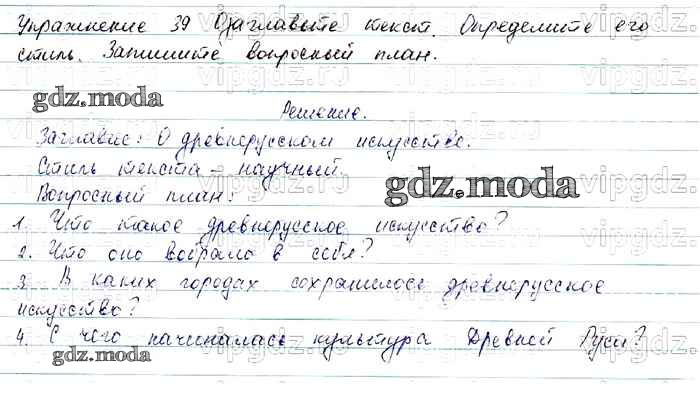 Упражнение 39 Озаглавьте текст. Определите его
стиль. Запишите вопросный план.
gdz.moda
Решение.
Заглавие: О древнерусском искусстве.
Стиль текста - научный.
Вопросный план:
gdz.moda
1. Что такое древнерусское искусство?
2. Что оно вобрало в себя?
3. В каких городах сохранилось древнерусское
искусство?
4. С чего начиналась культура Древней Руси?
gdz.moda